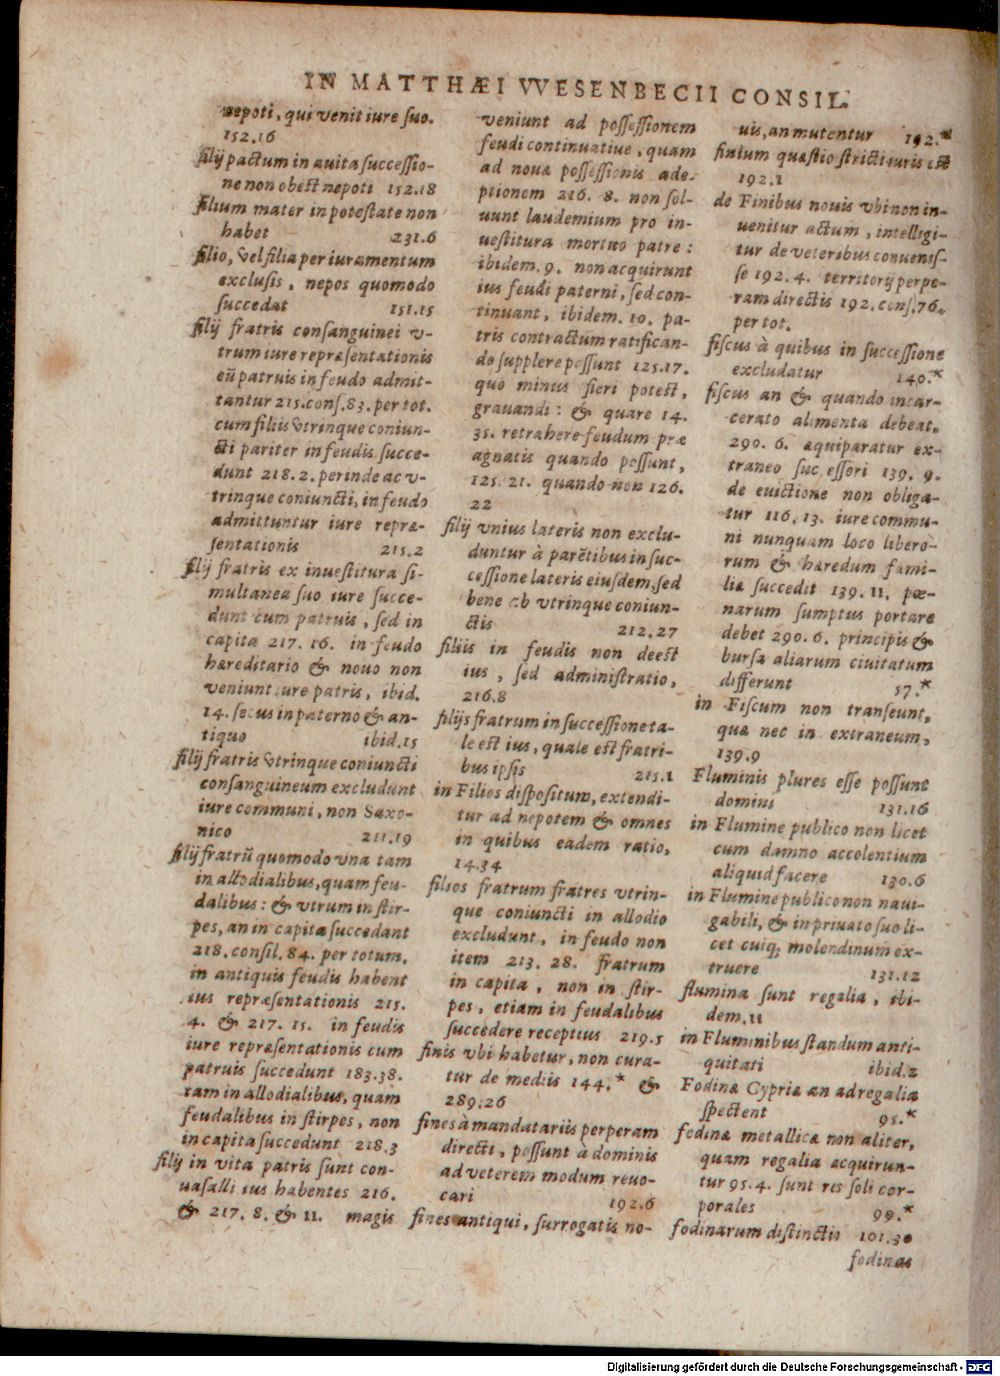 IN MATTHÆI VVESENBECII CONSIL.
nepoti, qui venit iure suo.
152.16
filij pactum in auita successio-
ne non obest nepoti 152.18
filium mater in potestate non
habet 231.6
filio, vel filia per iuramentum
exclusis, nepos quomodo
succedat 151.15
filij fratris consanguinei v-
trum iure repræsentationis
cũ patruis in feudo admit-
tantur 215. cons. 83. per tot.
cum filiis vtrinque coniun-
cti pariter in feudis succe-
dunt 218.2. perinde ac v-
trinque coniuncti, in feudo
admittuntur iure repræ-
sentationis 215.2
filij fratris ex inuestitura si-
multanea suo iure succe-
dunt cum patruis, sed in
capita 217.16. in feudo
hæreditario & nouo non
veniunt iure patris, ibid.
14. secus in paterno & an-
tiquo ibid.15
filij fratris vtrinque coniuncti
consanguineum excludunt
iure communi, non Saxo-
nico 211.19
filij fratrũ quomodo vna tam
in allodialibus, quam feu-
dalibus: & vtrum in stir-
pes, an in capita succedant
218. consil. 84. per totum.
in antiquis feudis habent
ius repræsentationis 215.
4. & 217. 15. in feudis
iure repræsentationis cum
patruis succedunt 183.38.
tam in allodialibus, quam
feudalibus in stirpes, non
in capita succedunt 218.3
filij in vita patris sunt con-
uasalli ius habentes 216.
& 217. 8. & 11. magis
veniunt ad possessionem
feudi continuatiue, quam
ad nouæ possessionis ade-
ptionem 216. 8. non sol-
uunt laudemium pro in-
uestitura mortuo patre:
ibidem. 9. non acquirunt
ius feudi paterni, sed con-
tinuant, ibidem. 10. pa-
tris contractum ratifican-
do supplere possunt 125.17.
quo minus fieri potest,
grauandi: & quare 14.
35. retrahere feudum præ
agnatis quando possunt,
125. 21. quando non 126.
22
filij vnius lateris non exclu-
duntur à parẽtibus in suc-
cessione lateris eiusdem, sed
bene ab vtrinque coniun-
ctis 212.27
filiis in feudis non deest
ius, sed administratio,
216.8
filijs fratrum in successione ta-
le est ius, quale est fratri-
bus ipsis 215.1
in Filios dispositum, extendi-
tur ad nepotem & omnes
in quibus eadem ratio,
14.34
filios fratrum fratres vtrin-
que coniuncti in allodio
excludunt, in feudo non
item 213. 28. fratrum
in capita, non in stir-
pes, etiam in feudalibus
succedere receptius 219.5
finis vbi habetur, non cura-
tur de mediis 144.* &
289.26
fines à mandatariis perperam
directi, possunt à dominis
ad veterem modum reuo-
cari 192.6
fines antiqui, surrogatis no-
uis, an mutentur 192.*
finium quæstio stricti iuris est
192.1
de Finibus nouis vbi non in-
uenitur actum, intelligi-
tur de veteribus conuenis-
se 192.4. territorij perpe-
ram directis 192. cons. 76.
per tot.
fiscus à quibus in successione
excludatur 140.*
fiscus an & quando incar-
cerato alimenta debeat.
290. 6. æquiparatur ex-
traneo successori 139. 9.
de euictione non obliga-
tur 116. 13. iure commu-
ni nunquam loco libero-
rum & hæredum fami-
liæ succedit 139. 11. pœ-
narum sumptus portare
debet 290.6. principis &
bursa aliarum ciuitatum
differunt 57.*
in Fiscum non transeunt,
quæ nec in extraneum,
139.9
Fluminis plures esse possunt
domini 131.16
in Flumine publico non licet
cum damno accolentium
aliquid facere 130.6
in Flumine publico non naui-
gabili, & in priuato suo li-
cet cuiq; molendinum ex-
truere 131.12
flumina sunt regalia, ibi-
dem. 11
in Fluminibus standum anti-
quitati ibid.2
Fodinæ Cypriæ an ad regalia
spectent 95.*
fodinæ metallicæ non aliter,
quam regalia acquirun-
tur 95.4. sunt res soli cor-
porales 99.*
fodinarum distinctio 101.30
fodinas
Digitalisierung gefördert durch die Deutsche Forschungsgemeinschaft - DFG